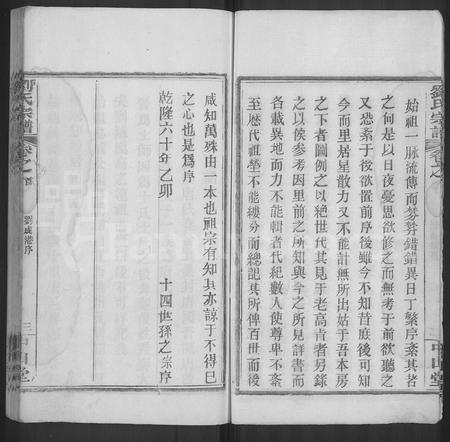 始祖一脉流傳而芬芳錯錯異日丁繁序紊其若
之何是以日夜憂思欲修之而無考于前欲聽之
又恐紊于後欲置前序後雖今不知昔庶後可知
今而里居星散力又不能計無所出姑于吾本房
之下者圖例之以絶世代其見于老高肯者另錄
之以俟參考因里前之所知與今之所見詳書而
各載異地而力不能輯者代紀數人使尊卑不紊
至歴代祖塋不能縷分而總記其所俾百世而後
咸知萬殊由一本也祖宗有知其亦諒于不得已
之心也是爲序
乾隆六十年乙卯
十四世孫之宗序
劉氏宗譜
卷之首
劉成港序
三
中山堂
劉氏宗譜
卷之
中山堂